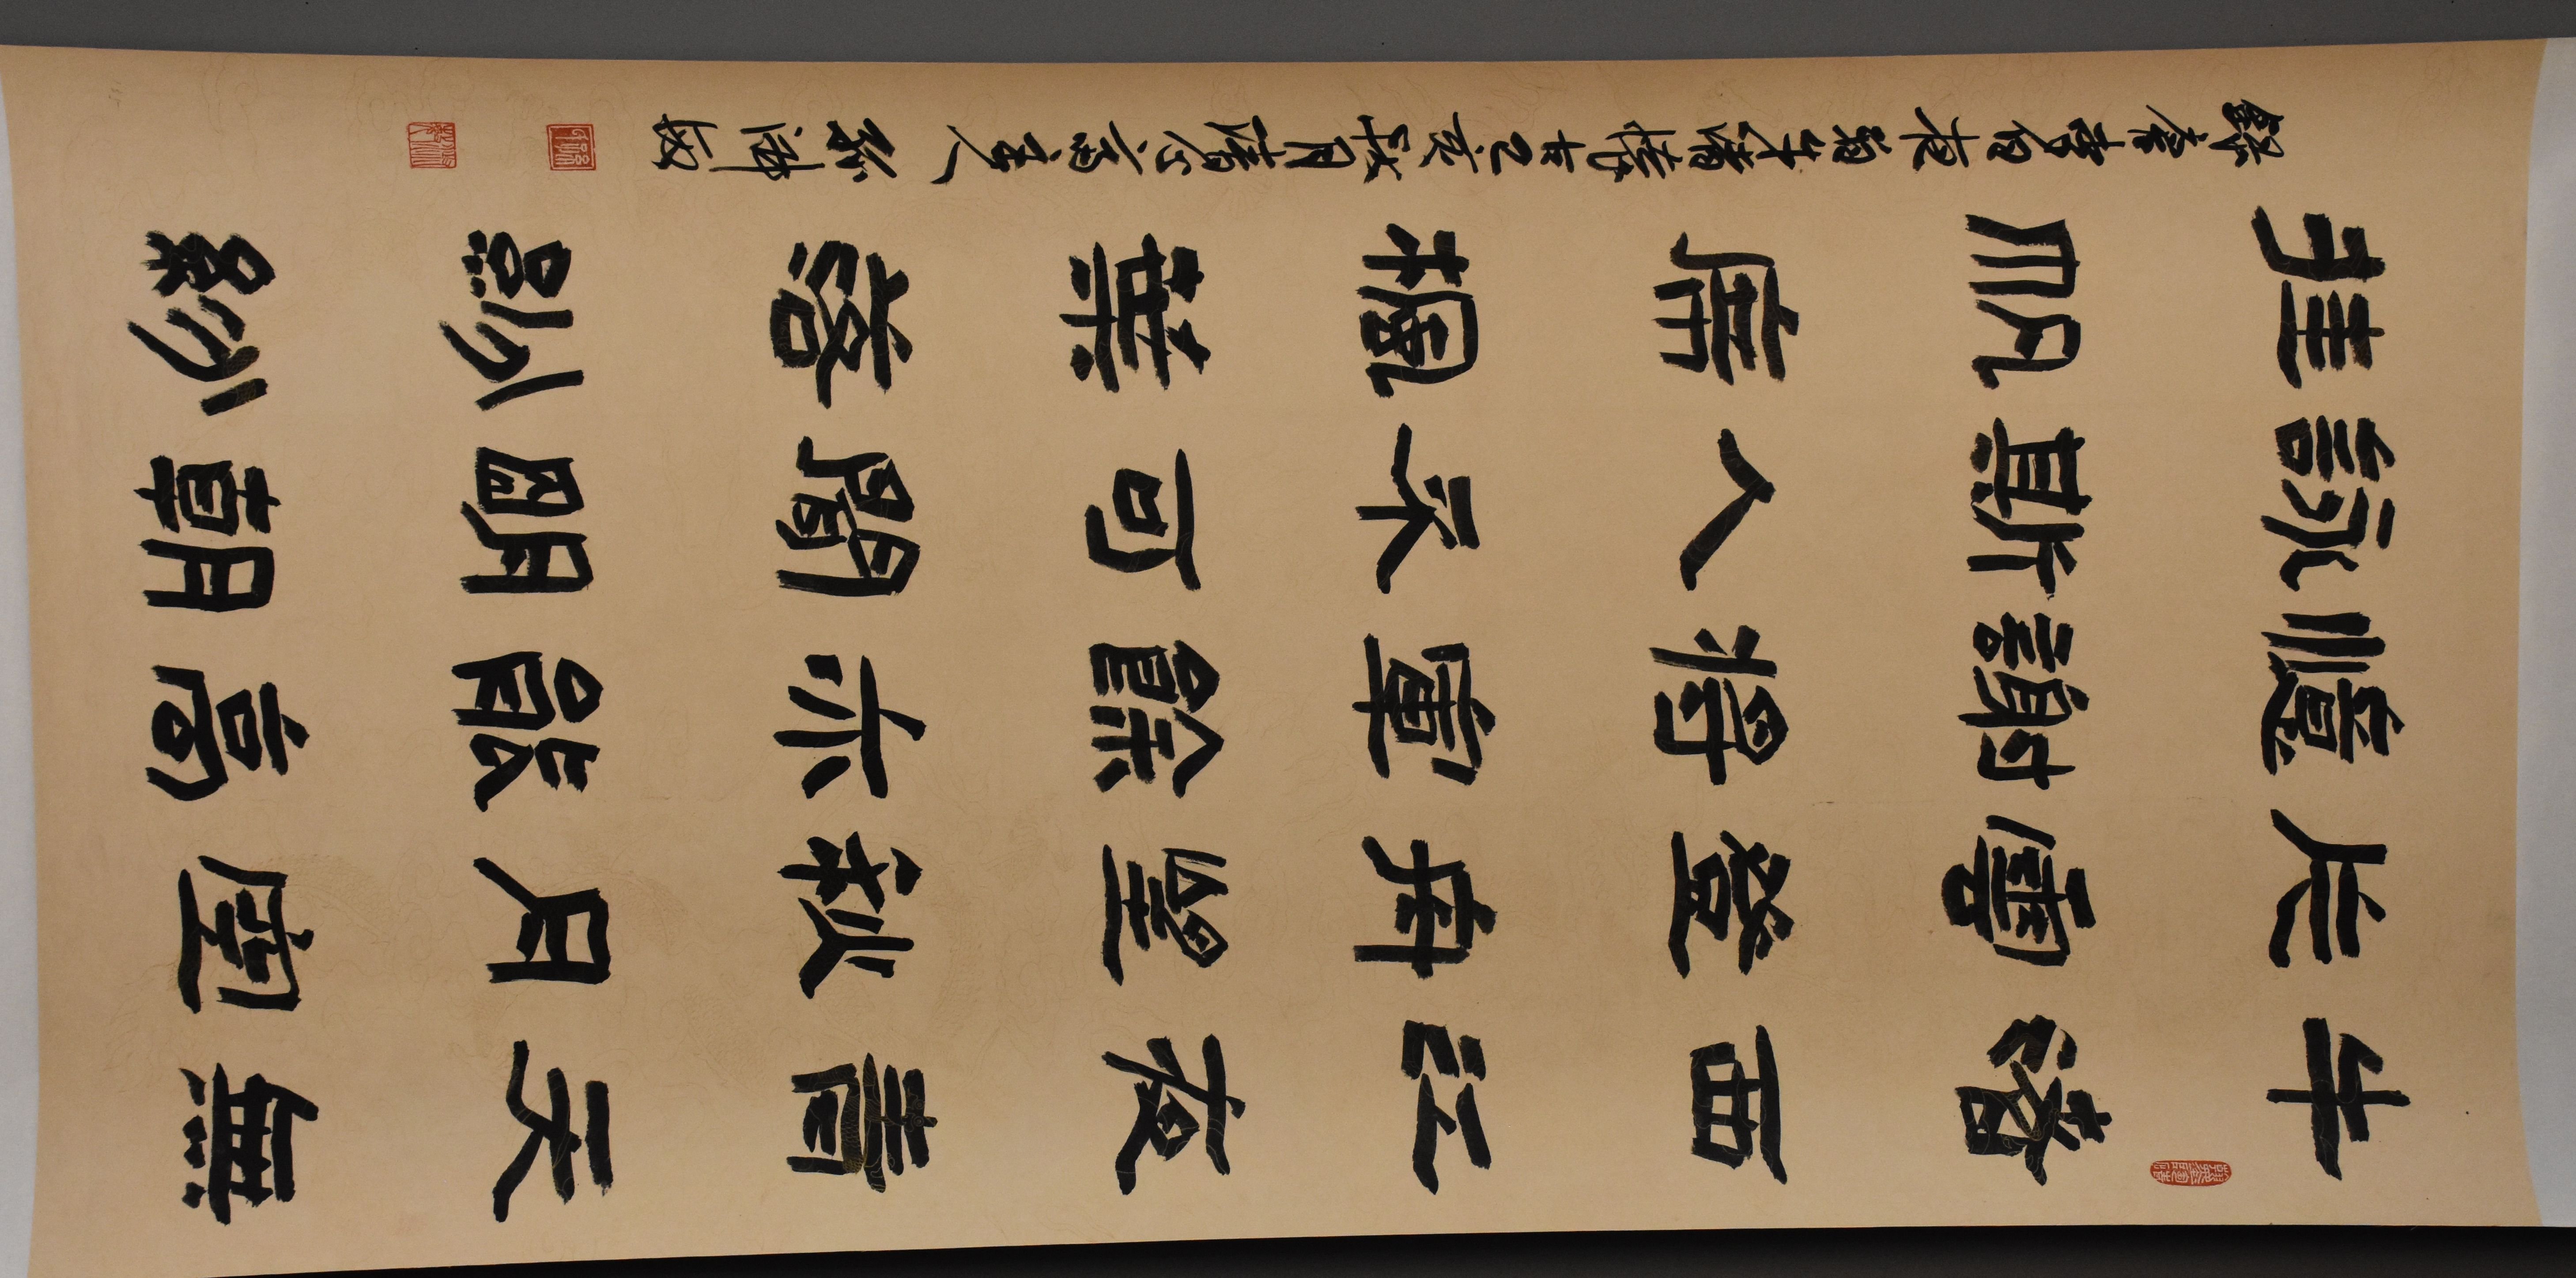 牛渚西江夜青天無
片雲登舟望秋月空
憶謝將軍餘亦能高
詠斯人不可聞明朝
挂帆席楓葉落紛紛
錄唐李白夜泊牛渚懷古 亥秋月 主人孫